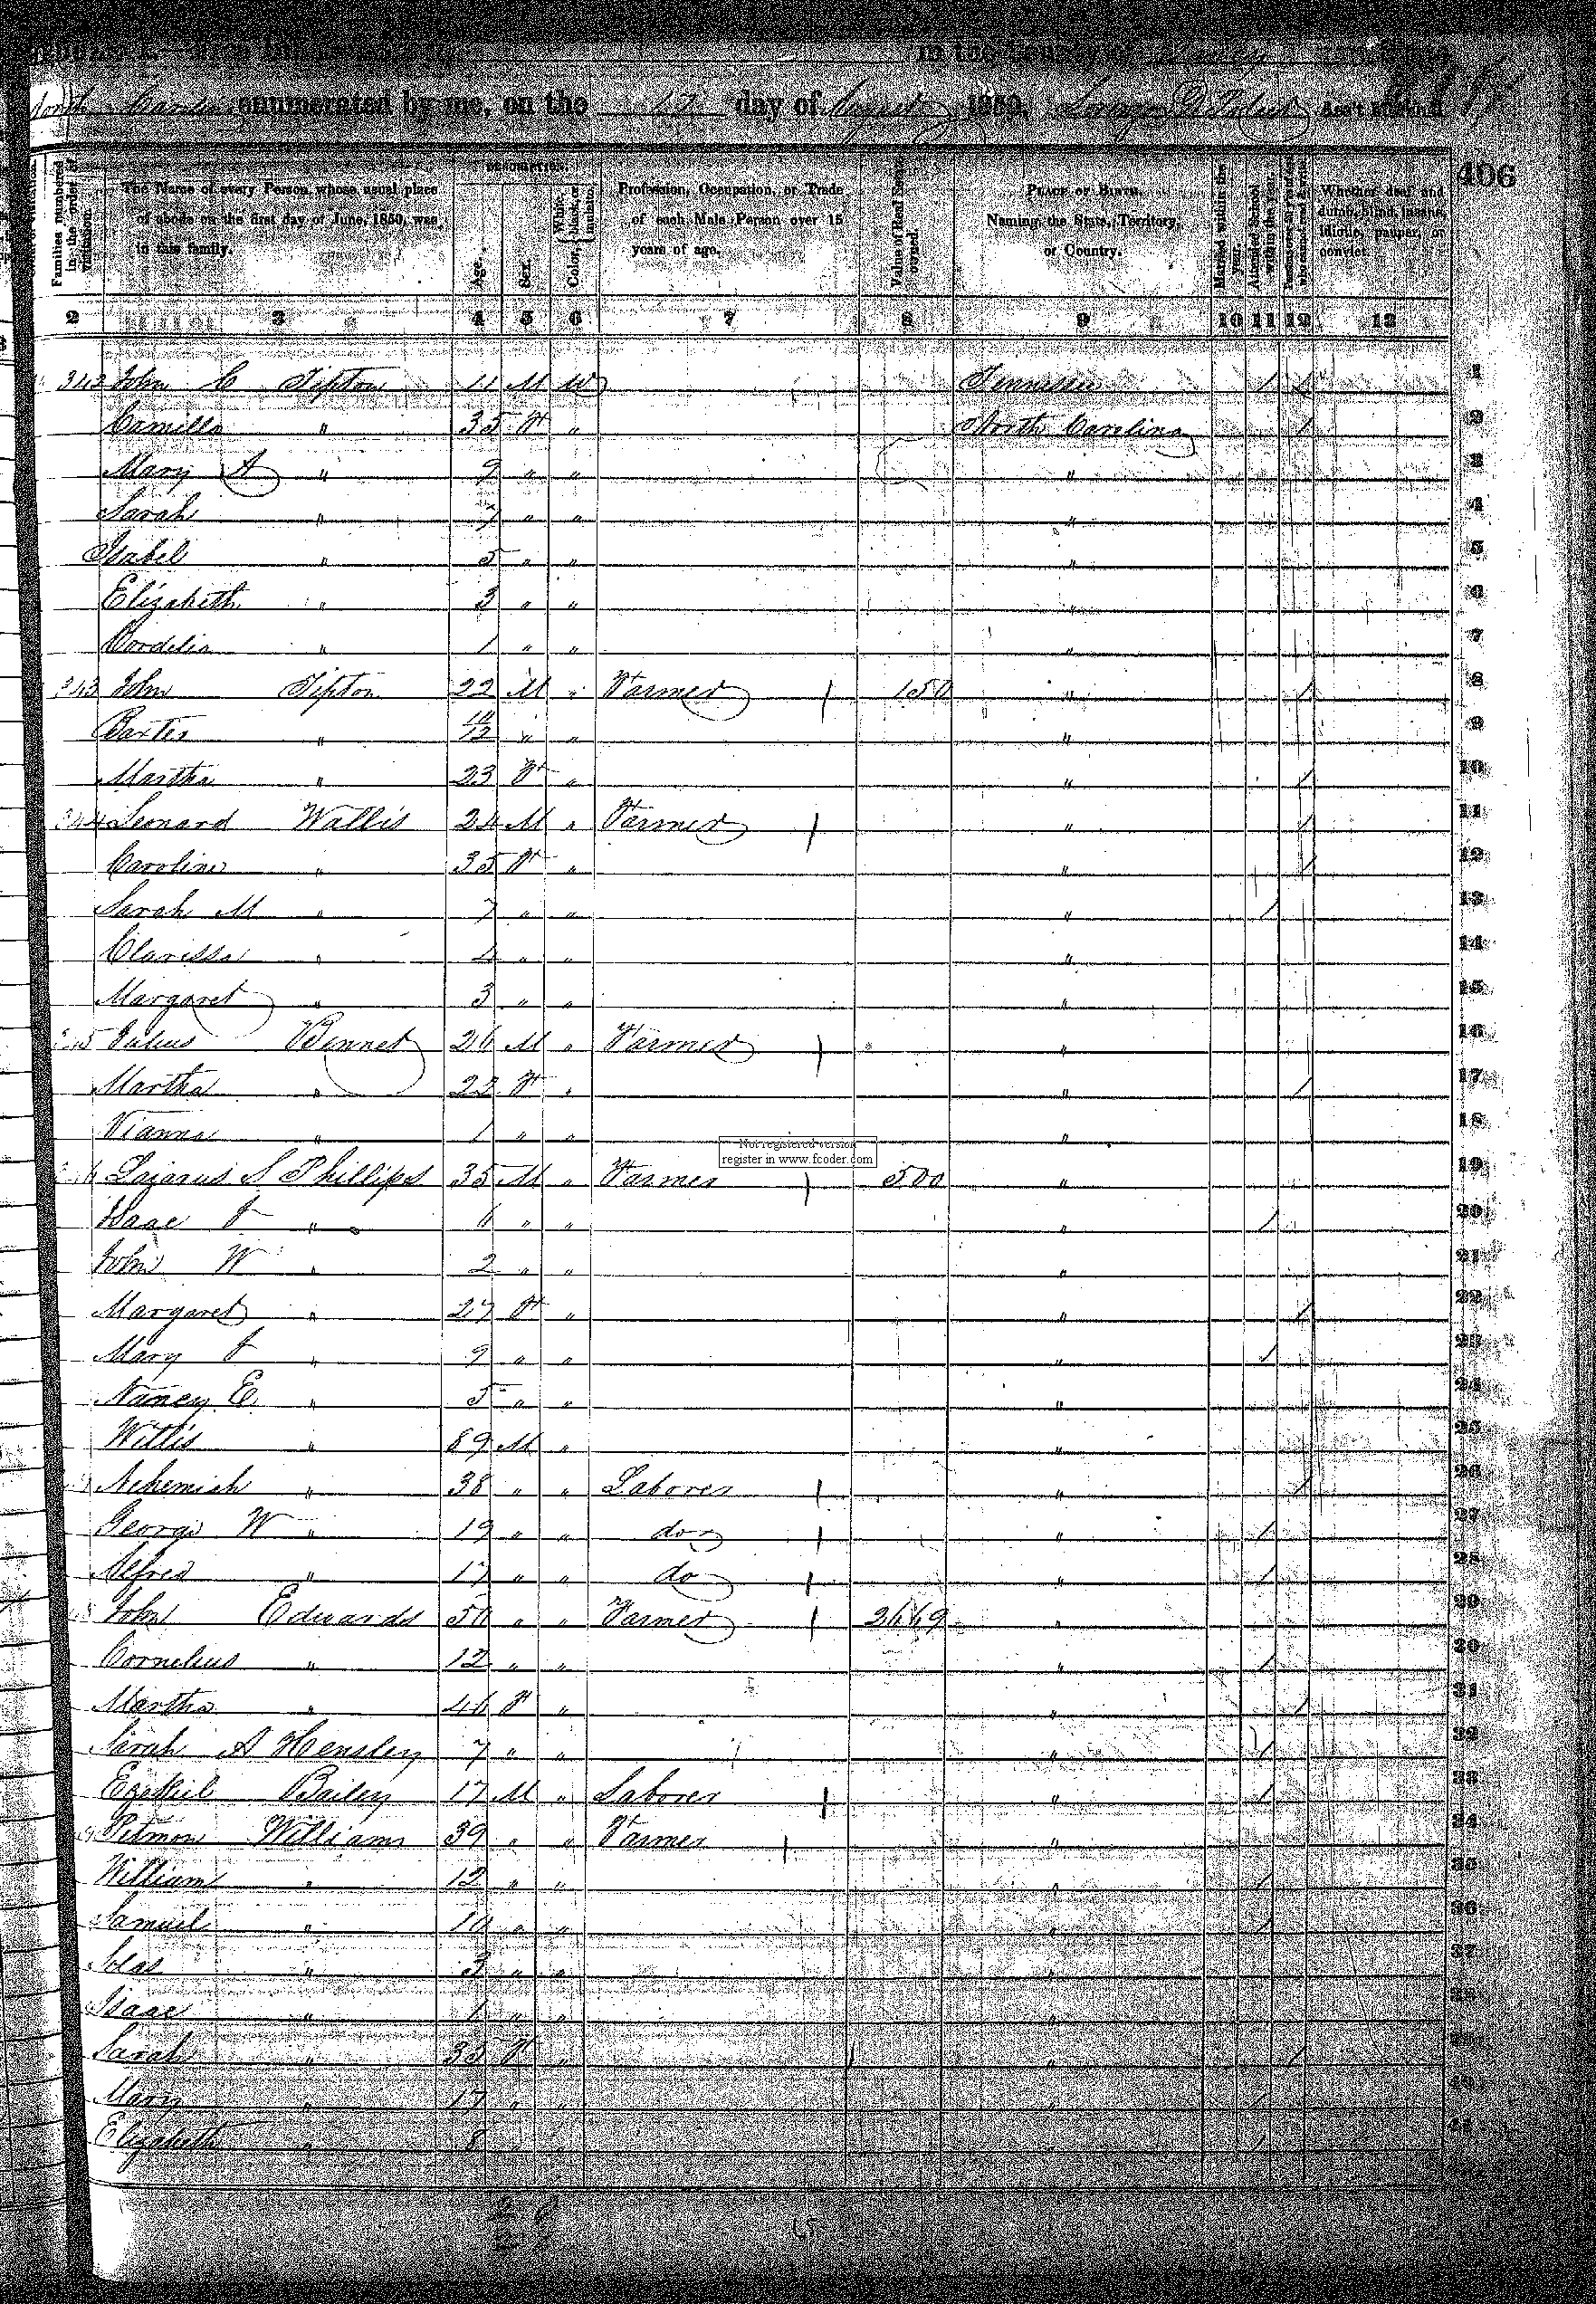 in the County of
North Carolina enumerated by me, on the 17 day of August 1850. Ass't Marshal
406
Families numbered in the order of visitation.
The Name of every Person whose usual place of abode on the first day of June, 1850, was in this family.
DESCRIPTION.
Age.
Sex.
Color, { White, black, or mulatto.
Profession, Occupation, or Trade of each Male Person over 15 years of age.
Value of Real Estate owned.
PLACE OF BIRTH. Naming the State, Territory, or Country.
Married within the year.
Attended School within the year.
Whether deaf and dumb, blind, insane, idiotic, pauper, or convict.
2 3 4 5 6 7 8 9 10 11 12 13
342 John C Tipton 11 M W Tennessee 1 1 1
Camilla " 35 F " North Carolina 1 2
Mary A " 9 " " " 3
Sarah " 7 " " " 4
Isabel " 5 " " " 5
Elizabeth " 3 " " " 6
Cordelia " 1 " " " 7
343 John Tipton 22 M " Farmer 150 " 1 8
Baxter " 10/12 " " " 9
Martha " 23 F " " 1 10
344 Leonard Wallis 24 M " Farmer " 1 11
Caroline " 35 F " " 1 12
Sarah M " 7 " " " 1 13
Clarissa " 4 " " " 14
Margaret " 3 " " " 15
Julius Bennet 26 M " Farmer " 16
Martha " 22 F " " 1 17
Vianna " 1 " " " 18
Not registered version
register in www.fcoder.com
Lazarus S Phillips 35 M " Farmer 500 " 19
Isaac J " 11 " " " 1 20
John W " 2 " " " 21
Margaret " 27 F " " 1 22
Mary J " 9 " " " 1 23
Nancy E " 5 " " " 24
Willis " 89 M " " 25
Nehemiah " 38 " " Laborer " 1 26
George W " 19 " " do " 1 27
Alfred " 17 " " do " 1 28
John Edwards 50 " " Farmer 2669 " 29
Cornelius " 12 " " " 1 30
Martha " 46 F " " 1 31
Sarah A Hensley 7 " " " 1 32
Ezekiel Bailey 17 M " Laborer " 1 33
Pitmon Williams 39 " " Farmer " 34
William " 12 " " " 1 35
Samuel " 10 " " " 1 36
Silas " 3 " " " 37
Isaac " 1 " " " 38
Sarah " 35 F " " 1 39
Mary " 17 " " " 1 40
Elizabeth " 8 1 41